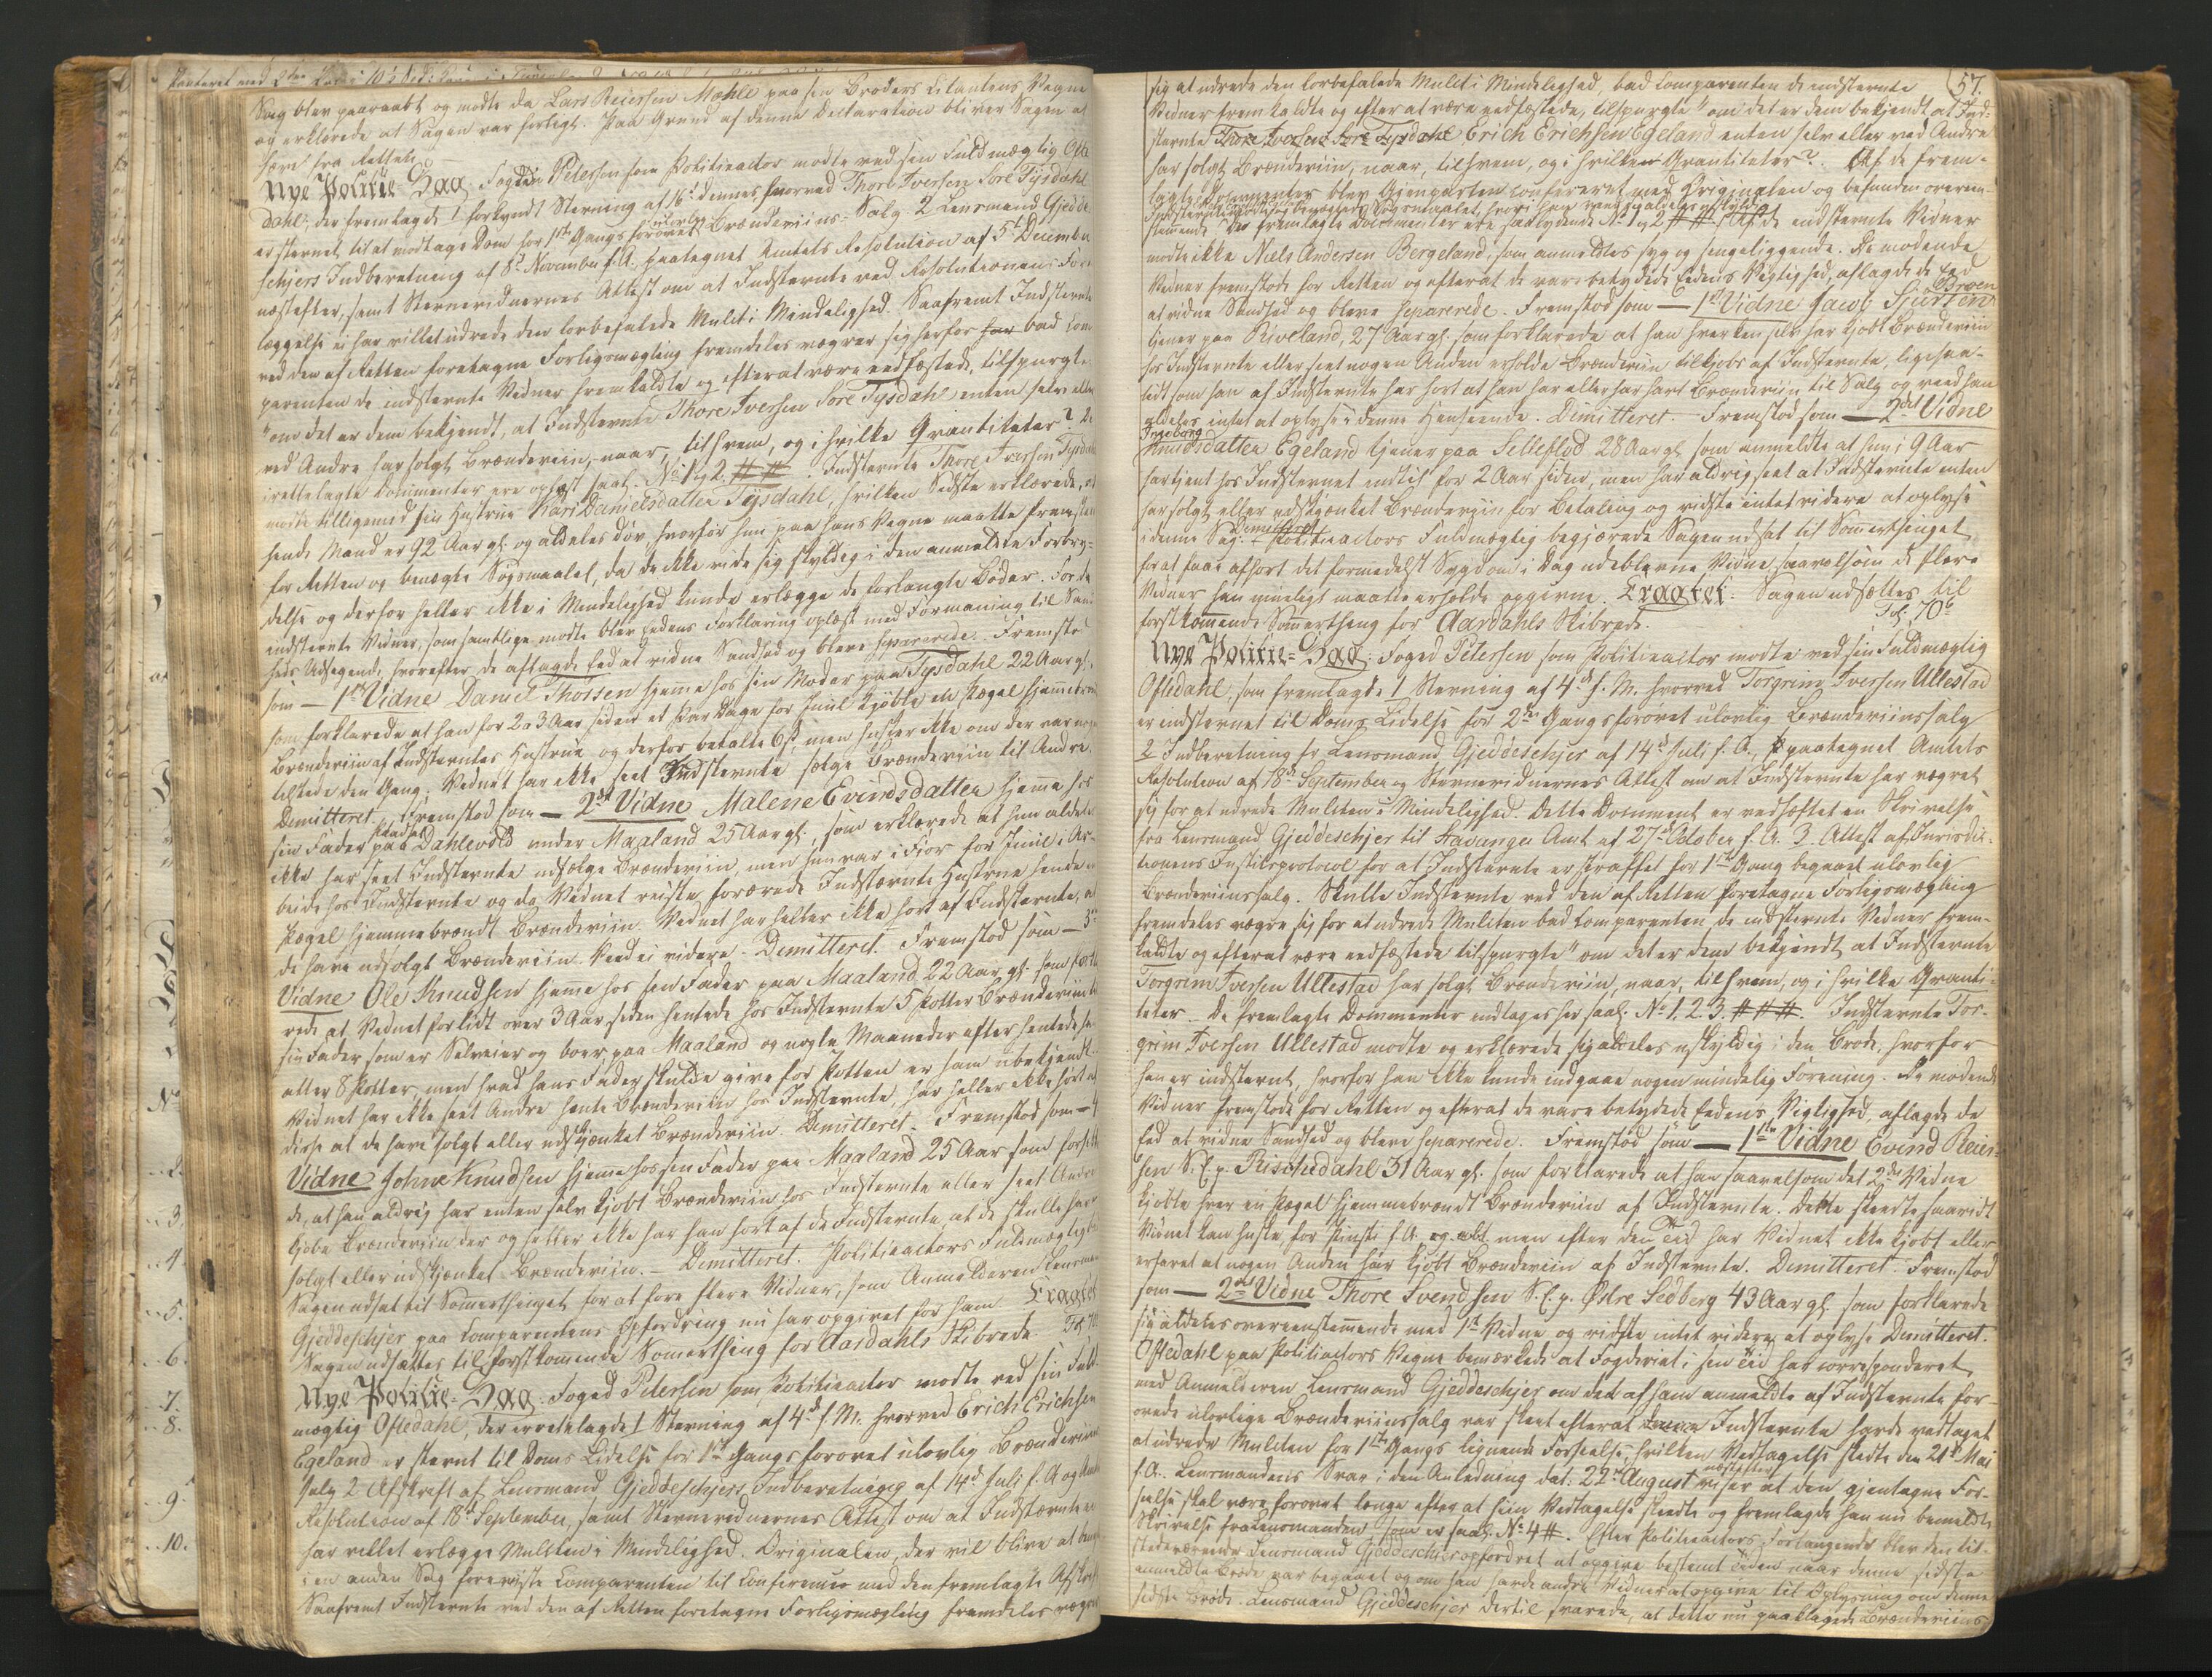 Sag blev paaraabt og mødte da Lars Reiersen Mæhle paa sin Broders Citantens Vegne
og erklærede at Sagen var forligt. Paa Grund af denne Declaration bliver Sagen at
hæve fra Retten.
Nye Politie-Sag. Fogden Petersen som Politieactor mødte ved sin Fuldmægtig Ofte
dahl, der fremlagde 1 forkyndt Stevning af 16d dennes hvorved Thore Iversen Søre Tysdahl
er stevnet til at modtage Dom for 1ste Gangs forøvet ulovlig Brændeviins-Salg 2 Lensmand Gjedde
schjers Indberetning af 8d November f. A. paategnet Amtets Resolution af 5d December
næstefter, samt Stevnevidnernes Attest om at Indstevnte ved Resolutionens Fore
læggelse ei har villet udrede den lovbefalede Mulct i Mindelighed. Saafremt Indstevnte
ved den af Retten foretagne Forligsmægling fremdeles vægrer sig herfor bad Com
parenten de indstevnte Vidner fremkaldte og efter at være eedfæstede, tilspurgte
"om det er dem bekjendt, at Indstevnte Thore Iversen Søre Tysdahl enten selv eller
ved Andre har solgt Brændeviin, naar, til hvem, og i hvilke Qvantiteter? De
irettelagte Documenter ere oplæst saal. No 1 og 2. # #. Indstevnte Thore Iversen Tysdahl
mødte tilligemed sin Hustrue Kari Danielsdatter Tysdahl, hvilken Sidste erklærede, at
hendes Mand er 92 Aar gl. og aldeles døv, hvorfor hun paa hans Vegne maatte fremstaae
for Retten og benægte Søgsmaalet, da de ikke vide sig skyldig i den anmeldte Forbry-
delse og derfor heller ikke i Mindelighed kunde erlægge de forlangte Bøder. For de
indstevnte Vidner, som samtlige mødte blev Eedens Forklaring oplæst med Formaning til Sand
heds Udsigende, hvorefter de aflagde Eed at vidne Sandhed og bleve separerede. Fremstod
som — 1ste Vidne Daniel Thorsen hjemme hos sin Moder paa Tysdahl 22 Aar gl.
som forklarede at han for 2 a 3 Aar siden et Par Dage for Juul kjøbte en Pægel hjemmebrændt
Brændeviin af Indstevntes Hustrue og derfor betalte 6 s, men husker ikke om der var nogen
tilstede den Gang. Vidnet har ikke seet Indstevnte sælge Brændeviin til Andre.
Demitteret. Fremstod som — 2det Vidne Malene Evindsdatter hjemme hos
sin Fader paa Pladsen Dahlevold under Maaland 25 Aar gl., som erklærede at hun aldeles
ikke har seet Indstevnte udsælge Brændeviin, men hun var i Fjor for Juul i Ar-
beide hos Indstevnte og da Vidnet reiste forærede Indstævnte Hustrue hende en
Pægel hjemmebrændt Brændeviin. Vidnet har heller ikke hørt af Indstevnte, at
de have udsolgt Brændeviin. Veed ei videre. Demitteret. Fremstod som — 3die
Vidne Ole Knudsen hjemme hos sin Fader paa Maaland 22 Aar gl. som forkla
rede at Vidnet for lidt over 3 Aar siden hentede hos Indstevnte 5 Potter Brændeviin til
sin Fader som er Selveier og boer paa Maaland og nogle Maaneder efter hentede han
atter 8 Potter, men hvad hans Fader skulde give for Potten er ham ubekjendt.
Vidnet har ikke seet Andre hente Brændeviin hos Indstevnte, har heller ikke hørt af
disse at de have solgt eller udskjænket Brændeviin. Demitteret. Fremstod som — 4
Vidne Johne Knudsen hjemme hos sin Fader paa Maaland 25 Aar som forkla
de, at han aldrig har enten selv kjøbt Brændeviin hos Indstevnte eller seet Andre
kjøbe Brændeviin der og heller ikke har han hørt af de Indstevnte, at de skulle have
solgt eller udskjænket Brændeviin. — Demitteret. Politieactors Fuldmægtig
Sagen udsat til Sommerthinget for at føre flere Vidner, som Anmelderen Lensmand
Gjeddeschjer paa Comparentens Opfordring nu har opgivet for ham. Eragtet
Sagen udsættes til førstkommende Sommerthing for Aardahls Skibrede. Fol 70
Nye Politie-Sag. Foged Petersen som Politieactor mødte ved sin Fuld-
mægtig Oftedahl, der irettelagde 1 Stevning af 4d f. M. hvorved Erich Erichsen
Egeland er stevnt til Doms Lidelse for 1ste Gangs forøvet ulovlig Brændeviins
salg 2 Afskrift af Lensmand Gjeddeschjers Indberetning af 14d Juli f. A og Amtets
Resolution af 18d September, samt Stevnevidnernes Attest om at Indstævnte ei
har villet erlægge Mulkten i Mindelighed. Originalen, der vil blive at bruge
i en anden Sag foreviiste Comparenten til Conference med den fremlagte Afskrift
Saafremt Indstevnte ved den af Retten foretagne Forligsmægling fremdeles vægrer
57.
sig at udrede den lovbefalede Mulct i Mindelighed, bad Comparenten de indstevnte
Vidner fremkaldte og efter at være eedfæstede, tilspurgte "om det er dem bekjendt at Ind-
stevnte Thore Iversen Søre Tysdahl Erich Erichsen Egeland enten selv eller ved Andre
har solgt Brændeviin, naar, til hvem, og i hvilke Qvantiteter? Af de frem-
lagte Documenter blev Gjenparten confereret med Originalen og befunden overeen-
stemmende. De fremlagte Documenter ere saalydende No 1 og 2 # #. Af de indstevnte Vidner
Indstevnte mødte og benægtede Søgsmaalet, hvori han var aldeles uskyldig
mødte ikke Niels Andersen Bergeland, som anmeldtes syg og sengeliggende. De mødende
Vidner fremstode for Retten og efterat de vare betydede Eedens Vigtighed, aflagde de Eed
at vidne Sandhed og bleve separerede. Fremstod som — 1ste Vidne Jacob Sjursen
tjener paa Riveland, 27 Aar gl. som forklarede at han hverken selv har kjøbt Brændeviin
hos Indstevnte eller seet nogen Anden erholde Brændeviin tilkjøbs af Indstevnte, ligesaa-
lidt som han af Indstevnte har hørt at han har eller har havt Brændeviin til Salg og veed han
aldeles intet at oplyse i denne Henseende. Dimitteret. Fremstod som — 2det Vidne
Ingeborg
Knudsdatter Egeland tjener paa Selleflod 28 Aar gl. som anmeldte at hun i 9 Aar
har tjent hos Indstevnet indtil for 2 Aar siden, men har aldrig seet at Indstevnte enten
har solgt eller udskjænket Brændeviin for Betaling og vidste intet videre at oplyse
i denne Sag. Demitteret. Politieactors Fuldmægtig begjærede Sagen udsat til Sommerthinget
for at faae afhørt det formedelst Sygdom i Dag udeblevne Vidne, saavelsom de flere
Vidner han mueligt maatte erholde opgivne. Eragtet: Sagen udsættes til
førstkommende Sommerthing for Aardahls Skibrede. Fol 70b
Nye Politie-Sag: Foged Petersen som Politieactor mødte ved sin Fuldmægtig
Oftedahl, som fremlagde 1 Stevning af 4de f. M. hvorved Torgrim Iversen Ullestad
er indstevnet til Doms Lidelse for 2den Gangs forøvet ulovlig Brændeviinssalg
2 Indberetning fr Lensmand Gjeddeschjer af 14d Juli f. A., paategnet Amtets
Resolution af 18de September og Stevnevidnernes Attest om at Indstevnte har vægret
sig for at udrede Mulcten i Mindelighed. Dette Document er vedhæftet en Skrivelse
fra Lensmand Gjeddeschjer til Stavanger Amt af 27d October f. A. 3. Attest af Jurisdic-
tionens Justitsprotocol for at Indstevnte er straffet for 1ste Gang begaaet ulovlig
Brændeviinssalg. Skulle Indstevnte ved den af Retten foretagne Forligsmægling
fremdeles vægre sig for at udrede Mulcten bad Comparenten de indstevnte Vidner frem-
kaldte og efter at være eedfæstede tilspurgte "om det er dem bekjendt, at Indstevnte
Torgrim Iversen Ullestad har solgt Brændeviin, naar, til hvem, og i hvilke Qvanti-
teter. De fremlagte Documenter indtages her saal. No 1. 2. 3. # # #. Indstevnte Tor-
grim Iversen Ullestad mødte og erklærede sig aldeles uskyldig i den Brøde, hvorfor
han er indstevnt, hvorfor han ikke kunde indgaae nogen mindelig Forening. De mødende
Vidner fremstode for Retten og efterat de vare betydede Eedens Vigtighed, aflagde de
Eed at vidne Sandhed og bleve separerede. Fremstod som — 1ste Vidne Evind Reier-
sen S. E. p. Rischedahl 31 Aar gl. som forklarede at han saavelsom det 2de Vidne
kjøbte hver en Pægel hjemmebrændt Brændeviin af Indstevnte. Dette skeedte saavidt
Vidnet kan huske, for Pintsi f. A. men efter den Tid har Vidnet ikke kjøbt eller
erfaret at nogen Anden har kjøbt Brændeviin af Indstevnte. Demitteret. Fremstod
som — 2det Vidne Thore Svendsen S. E. p. Østre Sedberg 43 Aar gl. som forklarede
sig aldeles overeenstemmende med 1ste Vidne og vidste intet videre at oplyse Demitteret.
Oftedahl paa Politiactors Vegne bemærkede at Fogderiet i sin Tid har correspondered
med Anmelderen Lensmand Gjeddeschjer om det af ham anmeldte af Indstevnte for-
øvede ulovlige Brændeviinssalg var skeet efterat Indstevnte havde vedtaget
at udrede Mulcten for 1ste Gangs lignende Forseelse, hvilken Vedtagelse skedte den 21d Mai
f. A. Lensmandens Svar i den Anledning dat. 22d August næstefter viser at den gjentagne For-
seelse skal være forøvet længe efter at hiin Vedtagelse skeedte og fremlagde han nu bemeldte
Skrivelse fra Lensmanden, som er saal. No 4 #. Efter Politieactors Forlangende blev den til-
stedeværende Lensmand Gjeddeschjer opfordret at opgive bestemt Tiden naar denne sidste
anmeldte Brøde var begaaet og om han havde andre Vidner at opgive til Oplysning om denne
sidste Brøde. Lensmand Gjeddeschjer dertil svarede, at dette nu paaklagede Brændeviins